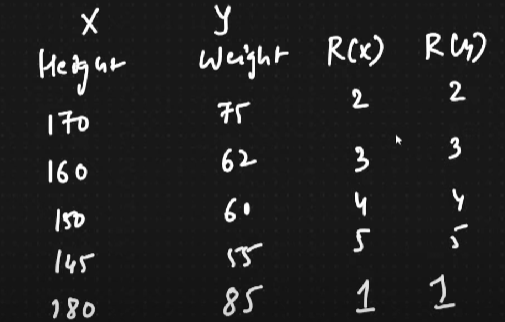 X Y
Height Weight R(x) R(y)
170 75 2 2
160 62 3 3
150 60 4 4
145 55 5 5
180 85 1 1